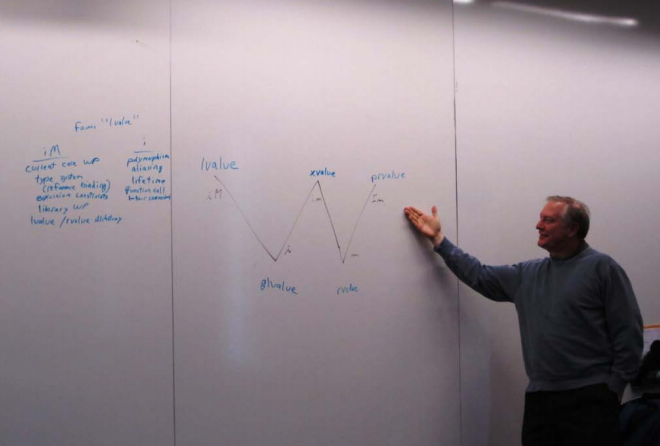 Favors "lvalue"
iM
current core WP
type system
(reference binding)
expression constraints
library WP
lvalue/rvalue dichotomy
i
polymorphism
aliasing
lifetime
function call
lvalue
xvalue
prvalue
iM
im
Im
i
m
glvalue
rvalue